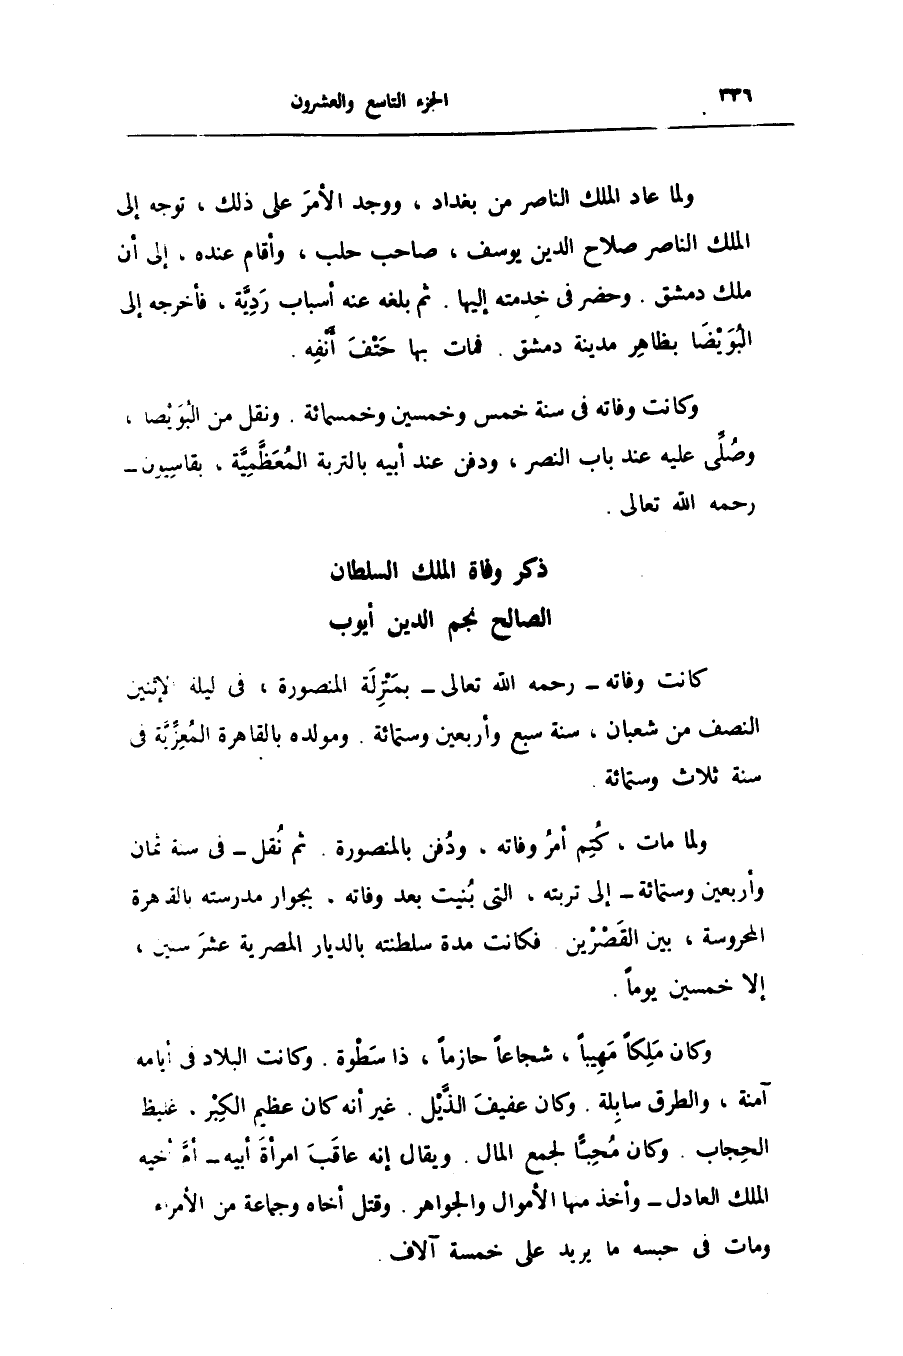 ٣٣٦
الجزء التاسع والعشرون
ولما عاد الملك الناصر من بغداد ، ووجد الأمرَ على ذلك ، توجه إلى
الملك الناصر صلاح الدين يوسف ، صاحب حلب ، وأقام عنده ، إلى أن
ملك دمشق . وحضر فى خدمته إليها . ثم بلغه عنه أسباب رَدِيَّة ، فأخرجه إلى
الْبُوَيْضَا بظاهِر مدينة دمشق . فمات بها حَتْفَ أَنْفِه .
وكانت وفاته فى سنة خمس وخمسين وخمسمائة . ونقل من الْبُوَيْضا ،
وصُلِّى عليه عند باب النصر ، ودفن عند أبيه بالتربة المُعَظَّمِيَّة ، بقاسِيون –
رحمه الله تعالى .
ذكر وفاة الملك السلطان
الصالح نجم الدين أيوب
كانت وفاته – رحمه الله تعالى – بمَنْزِلَة المنصورة ، فى ليلة الإثنين
النصف من شعبان ، سنة سبع وأربعين وستمائة . ومولده بالقاهرة المُعِزِّيَّة فى
سنة ثلاث وستمائة .
ولما مات ، كُتِم أمرُ وفاته ، ودُفن بالمنصورة . ثم نُقل – فى سنة ثمان
وأربعين وستمائة – إلى تربته ، التى بُنيت بعد وفاته ، بجوار مدرسته بالقاهرة
المحروسة ، بين القَصْرْين . فكانت مدة سلطنته بالديار المصرية عشرَ سنين ،
إلا خمسين يوماً .
وكان مَلِكاً مَهِيباً ، شجاعاً حازماً ، ذا سَطْوة . وكانت البلاد فى أيامه
آمنة ، والطرق سابِلة . وكان عفيفَ الذَّيْل . غير أنه كان عظيم الكِبْر ، غليظ
الحِجاب . وكان مُحِبًّا لجمع المال . ويقال إنه عاقَبَ امرأةَ أبيه – أمَّ أخيه
الملك العادل – وأخذ منها الأموال والجواهر . وقتل أخاه وجماعة من الأمراء
ومات فى حبسه ما يزيد على خمسة آلاف .